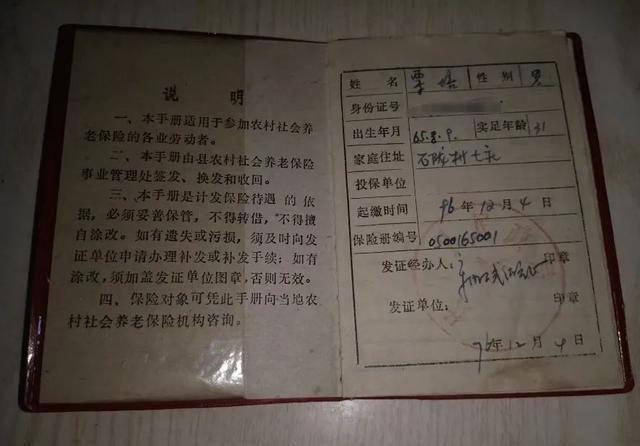 说 明
一、本手册适用于参加农村社会养
老保险的各业劳动者。
二、本手册由县农村社会养老保险
事业管理处签发、换发和收回。
三、本手册是计发保险待遇的依
据，必须妥善保管，不得转借，不得擅
自涂改。如有遗失或污损，须及时向发
证单位申请办理补发或补发手续；如有
涂改，须加盖发证单位图章，否则无效。
四、保险对象可凭此手册向当地农
村社会养老保险机构咨询。
姓名 性别 男
身份证号
出生年月 65.8.9. 实足年龄 31
家庭住址 石陇村七
投保单位
起缴时间 96年12月4日
保险册编号 0500165001
发证经办人： 印章
发证单位： 印章
96年12月4日